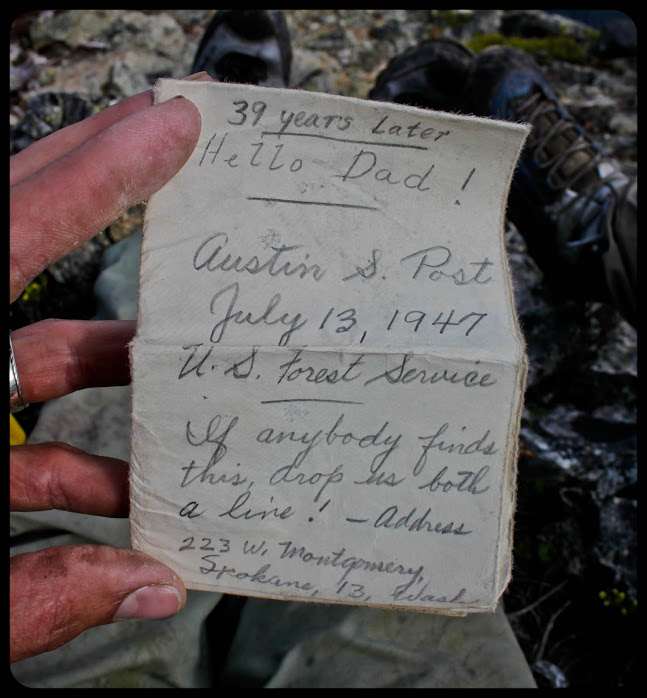 39 years Later
Hello Dad!
Austin S. Post
July 13, 1947
U.S. Forest Service
If anybody finds
this, drop us both
a line! - Address
223 W. Montgomery,
Spokane, 13, Wash